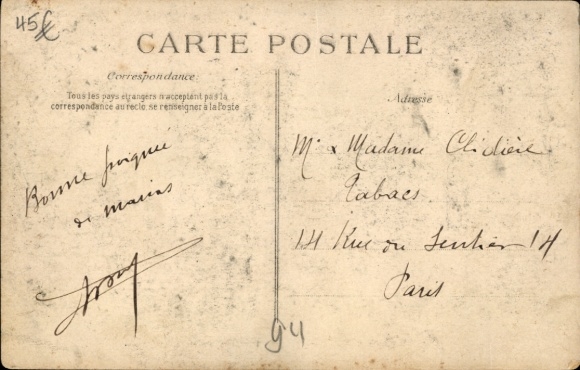 45
CARTE POSTALE
Correspondance
Tous les pays étrangers n'acceptent pas la
correspondance au recto, se renseigner à la Poste
Bonne poignée
de mains
Adresse
Mr & Madame Clidière
Tabacs
14 Rue du Sentier 14
Paris
94